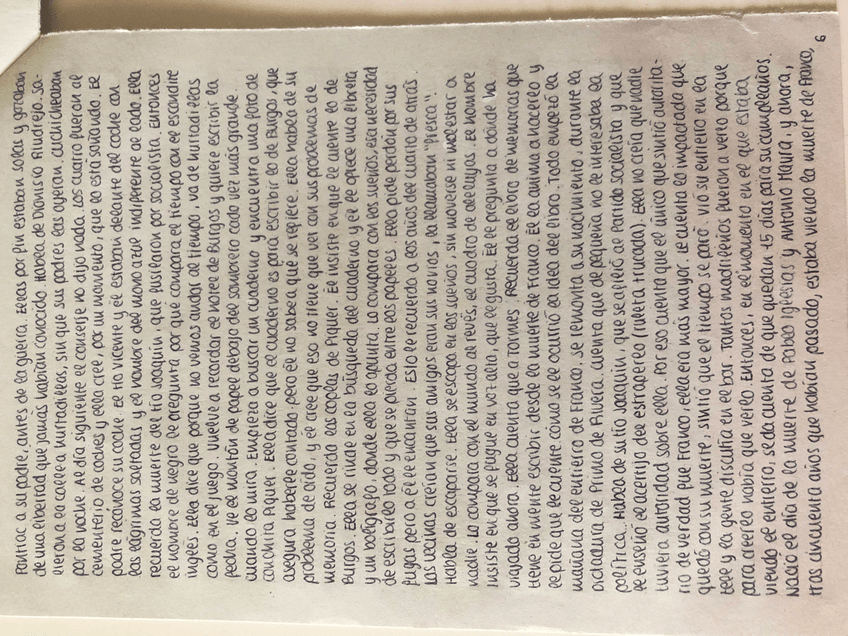 Pontiac a su padre, antes de la guerra. Ellas por fin estaban solas y gozaban
de una libertad que jamás habían conocido. Habla de Dionisio Ridruejo. Sa-
lieron a la calle a hurtadillas, sin que sus padres las oyeran, cuchicheaban
por la noche. Al día siguiente el conserje no dijo nada. Los cuatro fueron al
cementerio de coches y ella cree, por un momento, que lo está soñando. El
padre reconoce su coche. El tío Vicente y él estaban delante del coche con
las lágrimas saltadas y el hombre del mono azul indiferente al lado. Ella
recuerda la muerte del tío Joaquín, que fusilaron por socialista. Entonces
el hombre de negro le pregunta por qué compara el tiempo con el escondite
inglés. Ella dice que porque no vemos andar al tiempo, va de hurtadillas
como en el juego. Vuelve a recordar el hotel de Burgos y quiere escribir la
fecha. Ve el montón de papel debajo del sombrero cada vez más grande
cuando lo mira. Empieza a buscar un cuaderno y encuentra una foto de
Conchita Piquer. Ella dice que el cuaderno es para escribir lo de Burgos, que
asegura haberle contado, pero él no sabe a que se refiere. Ella habla de su
problema de oído, y él cree que eso no tiene que ver con sus problemas de
memoria. Recuerda las coplas de Piquer. Él insiste en que le cuente lo de
Burgos. Ella se rinde en la búsqueda del cuaderno y él le ofrece una libreta
y un bolígrafo, donde ella lo apunta. Lo compara con los sueños, esa necesidad
de escribirlo todo y que se pierda entre los papeles. Ella pide perdón por sus
fugas pero a él le encantan. Esto le recuerda a los años del cuarto de atrás.
Las vecinas creían que sus amigos eran sus novios, la llamaban "fresca".
Habla de escaparse. Ella se escapa en los sueños, sin moverse ni molestar a
nadie. Lo compara con el mundo al revés, el cuadro de aleluyas. El hombre
insiste en que se fugue en voz alta, que le gusta. Él le pregunta a dónde ha
viajado ahora. Ella cuenta que a Tormes. Recuerda el libro de memorias que
tiene en mente escribir, desde la muerte de Franco. Él la anima a hacerlo y
le pide que le cuente cómo se le ocurrió la idea del libro. Todo empezó la
mañana del entierro de Franco, se remonta a su nacimiento, durante la
dictadura de Primo de Rivera. Cuenta que de pequeña no le interesaba la
política. Habla de su tío Joaquín, que se afilió al partido socialista y que
le enseñó el acertijo del estraperlo (ruleta trucada). Ella no creía que nadie
tuviera autoridad sobre ella. Por eso cuenta que el único que sintió autorita-
rio de verdad fue Franco, ella era más mayor. Le cuenta lo impactada que
quedó con su muerte, sintió que el tiempo se paró. Vio su entierro en la
tele y la gente discutía en el bar. Tantos madrileños fueron a verlo porque
para creerlo había que verlo. Entonces, en el momento en el que estaba
viendo el entierro, se da cuenta de que quedan 15 días para su cumpleaños.
Nació el día de la muerte de Pablo Iglesias y Antonio Maura. Y ahora,
tras cincuenta años que habían pasado, estaba viendo la muerte de Franco,
6